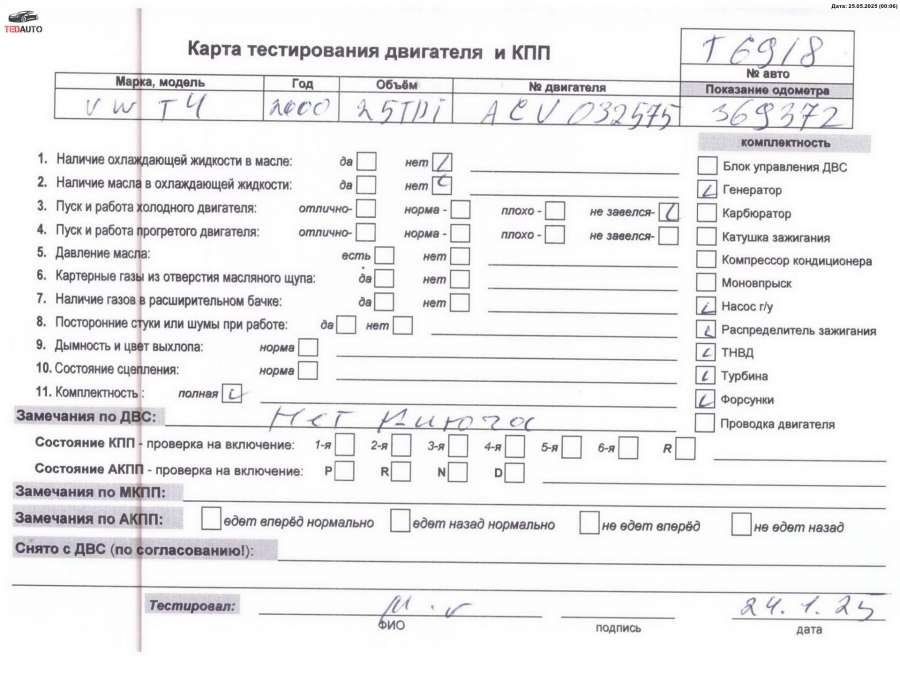 Дата: 25.05.2025 (00:06)
TEDAUTO
Карта тестирования двигателя и КПП
T 6918
№ авто
Марка, модель Год Объём № двигателя Показание одометра
VW T4 2000 25TDI ACV 032575 369372
комплектность
1. Наличие охлаждающей жидкости в масле: да нет
2. Наличие масла в охлаждающей жидкости: да нет
3. Пуск и работа холодного двигателя: отлично- норма - плохо - не завелся-
4. Пуск и работа прогретого двигателя: отлично- норма - плохо - не завелся-
5. Давление масла: есть нет
6. Картерные газы из отверстия масляного щупа: да нет
7. Наличие газов в расширительном бачке: да нет
8. Посторонние стуки или шумы при работе: да нет
9. Дымность и цвет выхлопа: норма
10. Состояние сцепления: норма
11. Комплектность : полная
Блок управления ДВС
Генератор
Карбюратор
Катушка зажигания
Компрессор кондиционера
Моновпрыск
Насос г/у
Распределитель зажигания
ТНВД
Турбина
Форсунки
Проводка двигателя
Замечания по ДВС: Нет Ключа
Состояние КПП - проверка на включение: 1-я 2-я 3-я 4-я 5-я 6-я R
Состояние АКПП - проверка на включение: P R N D
Замечания по МКПП:
Замечания по АКПП: едет вперёд нормально едет назад нормально не едет вперёд не едет назад
Снято с ДВС (по согласованию!):
Тестировал: 24.1.25
ФИО подпись дата